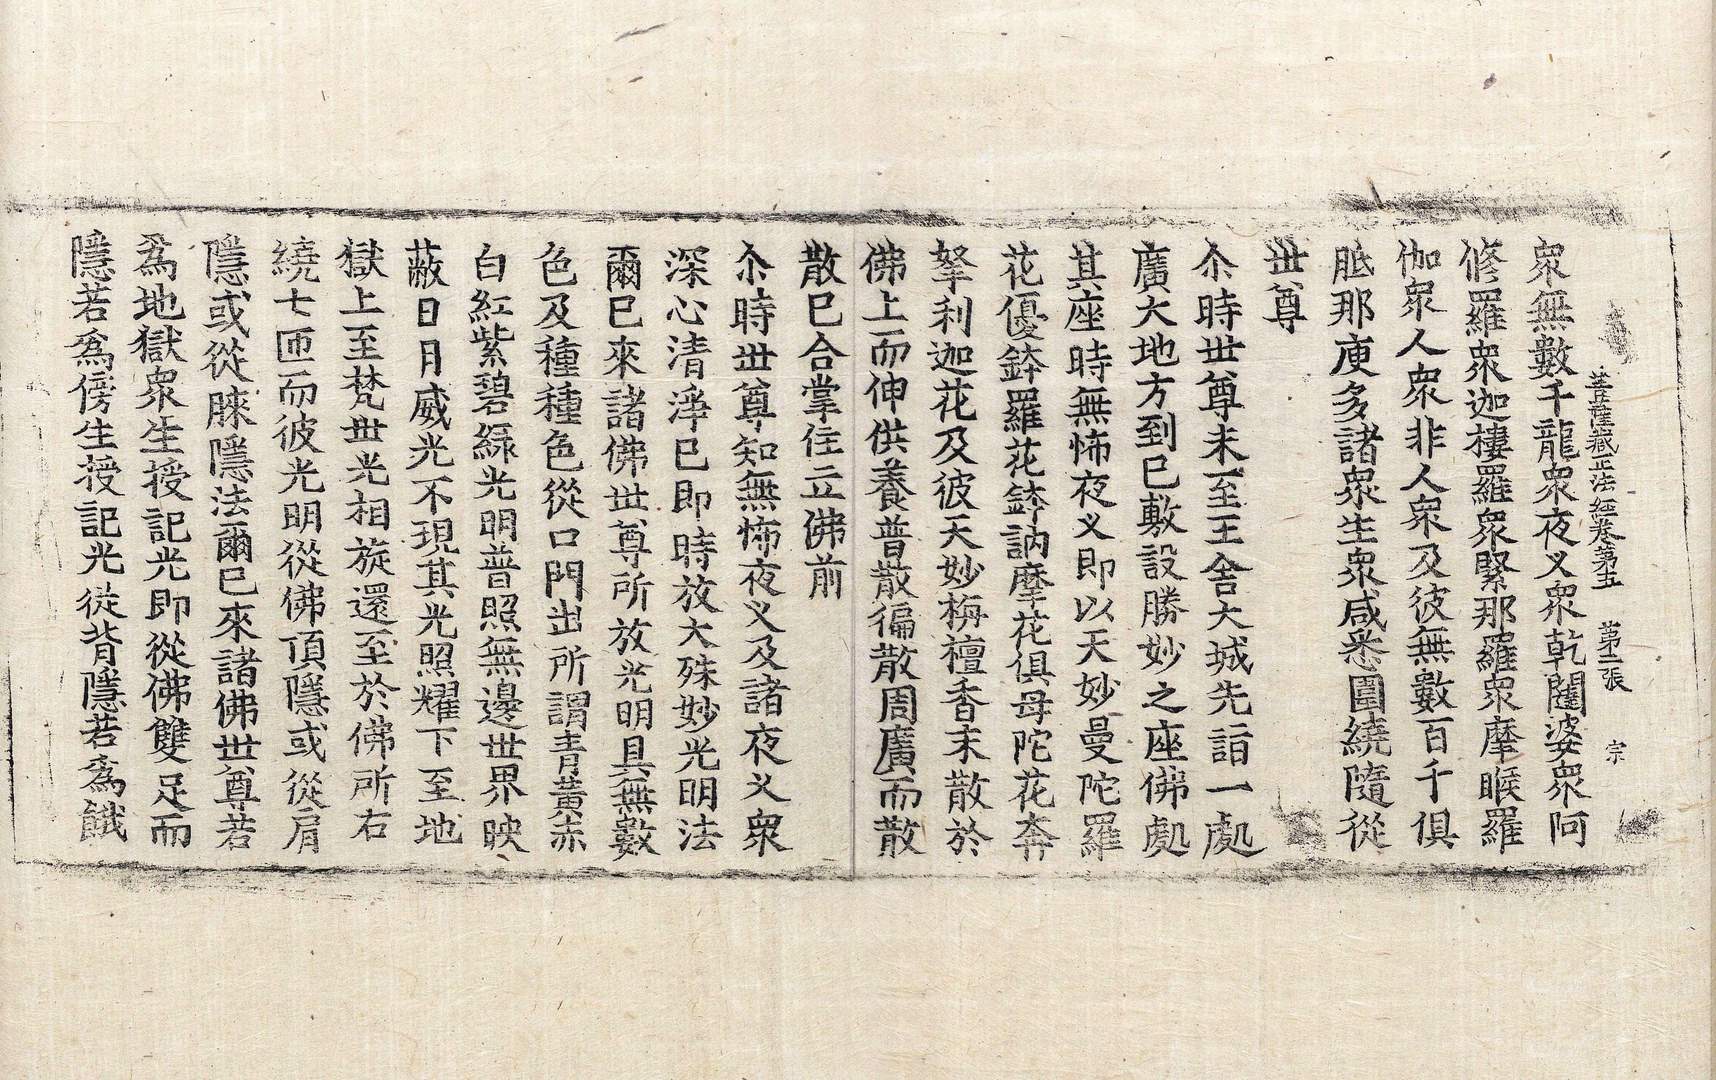 菩薩藏正法經卷第五　第二張　宗
衆無數千龍衆夜叉衆乾闥婆衆阿
修羅衆迦樓羅衆緊那羅衆摩睺羅
伽衆人衆非人衆及彼無數百千俱
胝那庾多諸衆生衆咸悉圍繞隨從
世尊
尒時世尊未至王舍大城先詣一處
廣大地方到已敷設勝妙之座佛處
其座時無怖夜叉即以天妙曼陀羅
花優鉢羅花鉢訥摩花俱母陀花奔
拏利迦花及彼天妙栴檀香末散於
佛上而伸供養普散徧散周廣而散
散已合掌住立佛前
尒時世尊知無怖夜叉及諸夜叉衆
深心清淨已即時放大殊妙光明法
爾已來諸佛世尊所放光明具無數
色及種種色從口門出所謂青黃赤
白紅紫碧綠光明普照無邊世界映
蔽日月威光不現其光照耀下至地
獄上至梵世光相旋還至於佛所右
繞七匝而彼光明從佛頂隱或從肩
隱或從膝隱法爾已來諸佛世尊若
爲地獄衆生授記光即從佛雙足而
隱若爲傍生授記光從背隱若爲餓